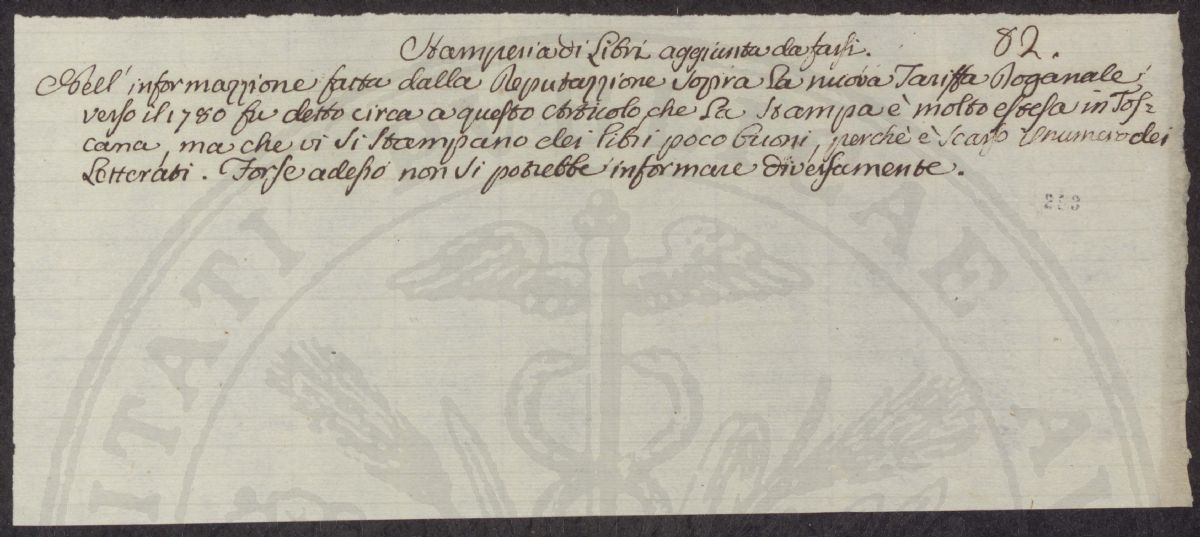 Stamperia di Libri aggiunta da farsi. 82.
Nell' informazzione fatta dalla Deputazzione sopra la nuova Tariffa Doganale
verso il 1780 fu detto circa a questo Articolo, che la Stampa è molto estesa in Tos=
cana, ma che vi si Stampano dei libri poco buoni, perchè è Scarso il numero dei
Letterati. Forse adesso non si potrebbe informare diversamente.
ITATI